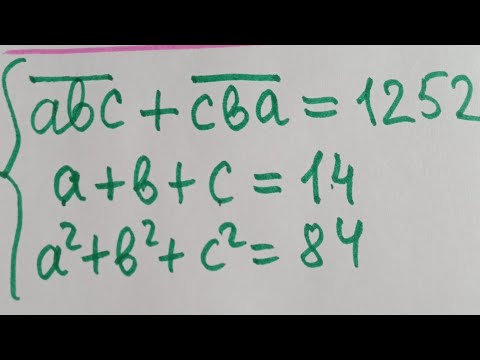 abc + cва = 1252
a + в + c = 14
a² + в² + c² = 84